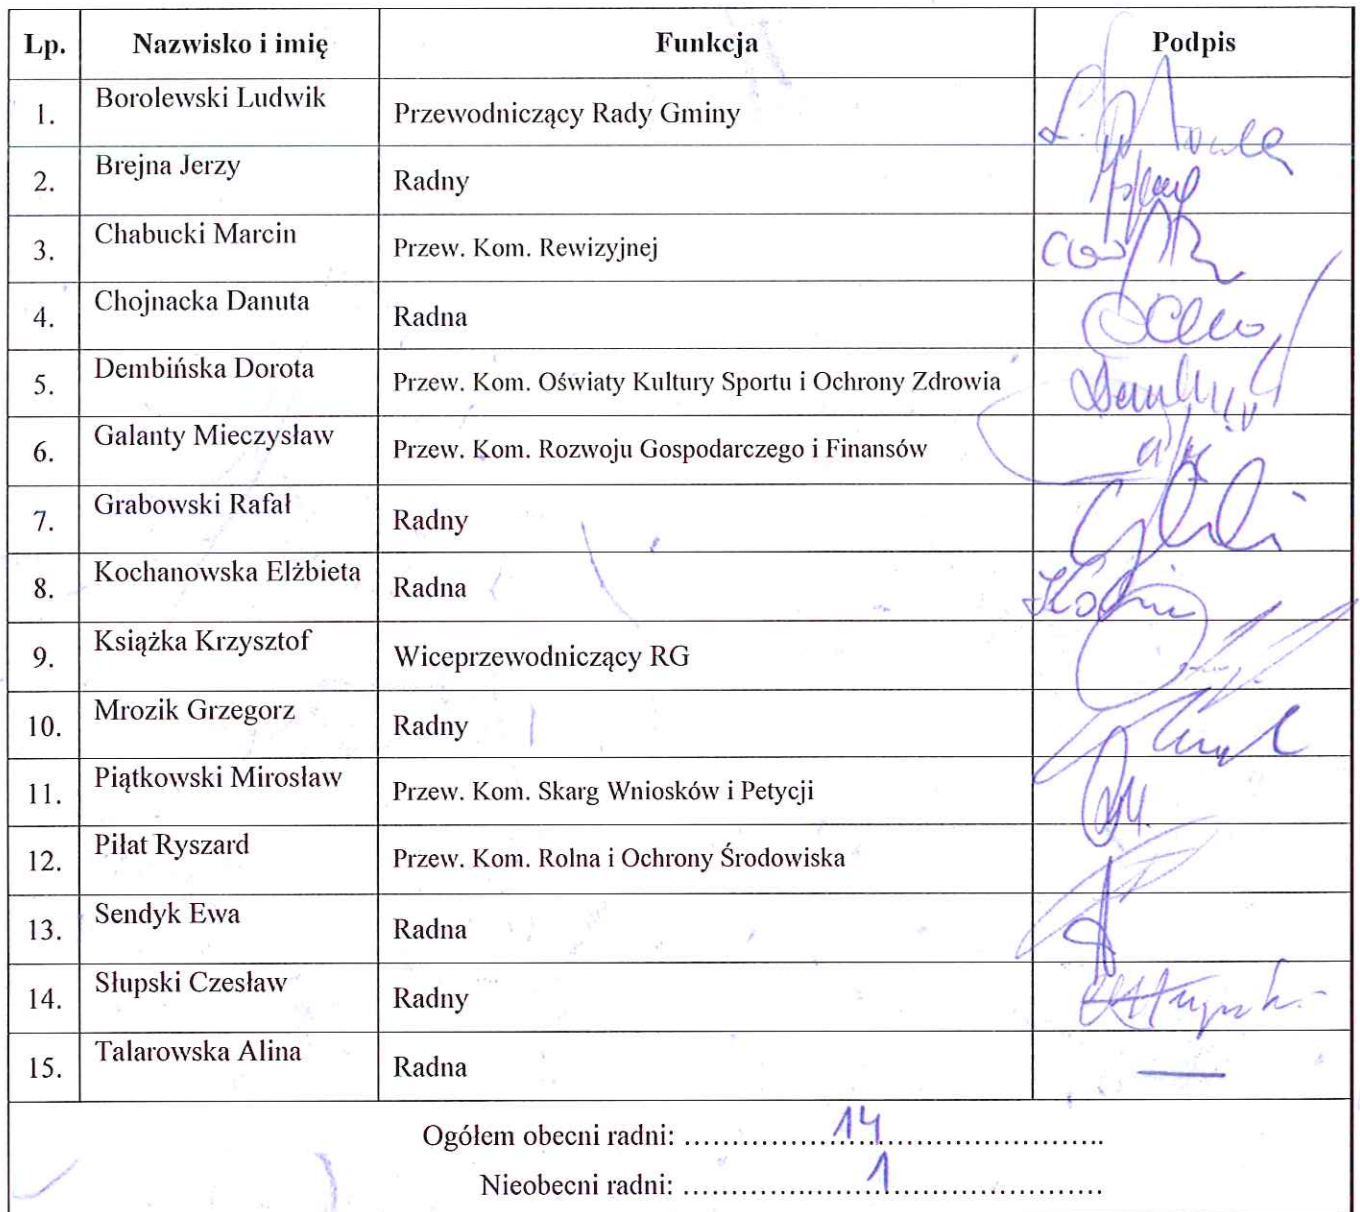 Lp. Nazwisko i imię Funkcja Podpis
1. Borolewski Ludwik Przewodniczący Rady Gminy
2. Brejna Jerzy Radny
3. Chabucki Marcin Przew. Kom. Rewizyjnej
4. Chojnacka Danuta Radna
5. Dembińska Dorota Przew. Kom. Oświaty Kultury Sportu i Ochrony Zdrowia
6. Galanty Mieczysław Przew. Kom. Rozwoju Gospodarczego i Finansów
7. Grabowski Rafał Radny
8. Kochanowska Elżbieta Radna
9. Książka Krzysztof Wiceprzewodniczący RG
10. Mrozik Grzegorz Radny
11. Piątkowski Mirosław Przew. Kom. Skarg Wniosków i Petycji
12. Piłat Ryszard Przew. Kom. Rolna i Ochrony Środowiska
13. Sendyk Ewa Radna
14. Słupski Czesław Radny
15. Talarowska Alina Radna —
Ogółem obecni radni: ................14................
Nieobecni radni: ................1................